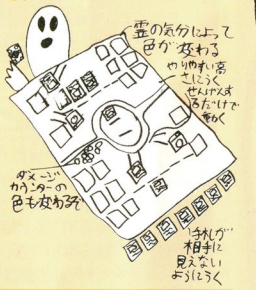 霊の気分によって
色が変わる
やりやすい高
さにうく
せんかんす
るだけで
動く
ダメージ
カウンターの
色も変わるぞ
手札が
相手に
見えない
ようにうく